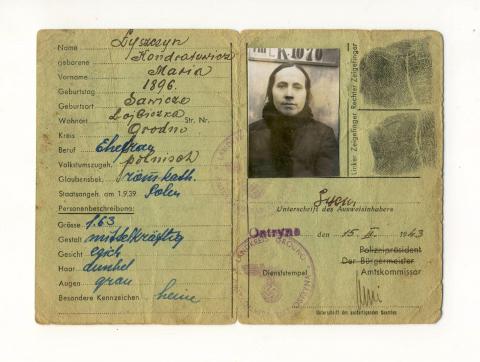 Name Lyszczyn
geborene Kondratowicz
Vorname Maria
Geburtstag 1896.
Geburtsort Sawicze
Wohnort Str. Nr.
Kreis Grodno
Beruf Ehefrau
Volkstumszugeh. polnisch
Glaubensbek. röm kath.
Staatsangeh. am 1.9.39. Polen
Personenbeschreibung:
Grösse 1.63
Gestalt mittelkräftig
Gesicht
Haar dunkel
Augen grau
Besondere Kennzeichen keine
K 1070
Rechter Zeigefinger
Linker Zeigefinger
Unterschrift des Ausweisinhabers
den 15. II. 1943
Polizeipräsident
Der Bürgermeister
Dienststempel Amtskommissar
Unterschrift des ausfertigenden Beamten